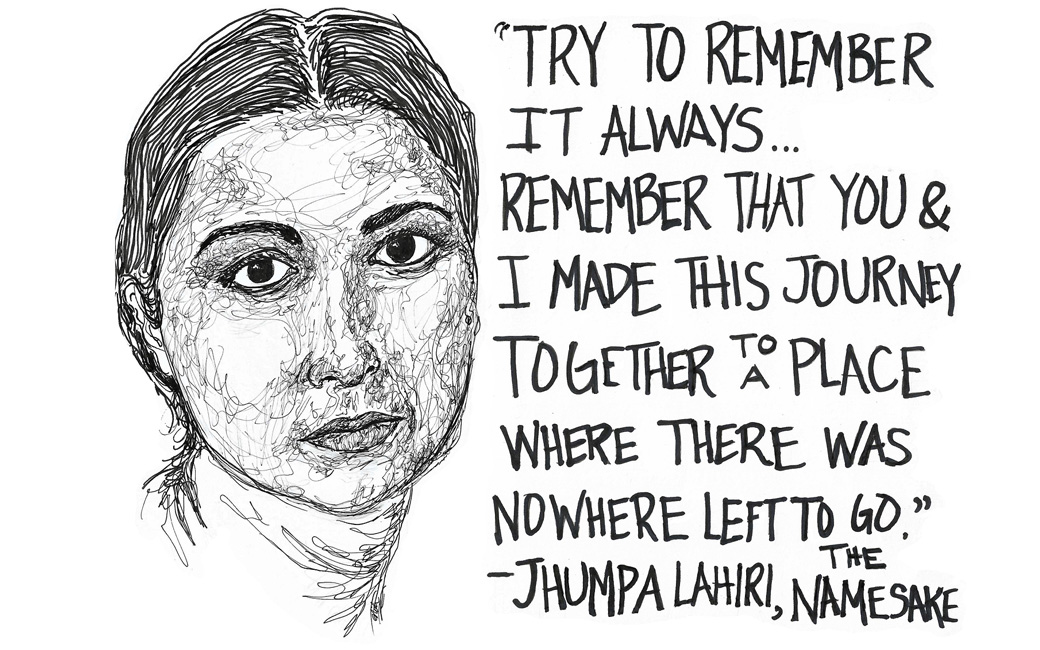 “TRY TO REMEMBER
IT ALWAYS...
REMEMBER THAT YOU &
I MADE THIS JOURNEY
TOGETHER TO A PLACE
WHERE THERE WAS
NOWHERE LEFT TO GO.”
-JHUMPA LAHIRI, THE NAMESAKE